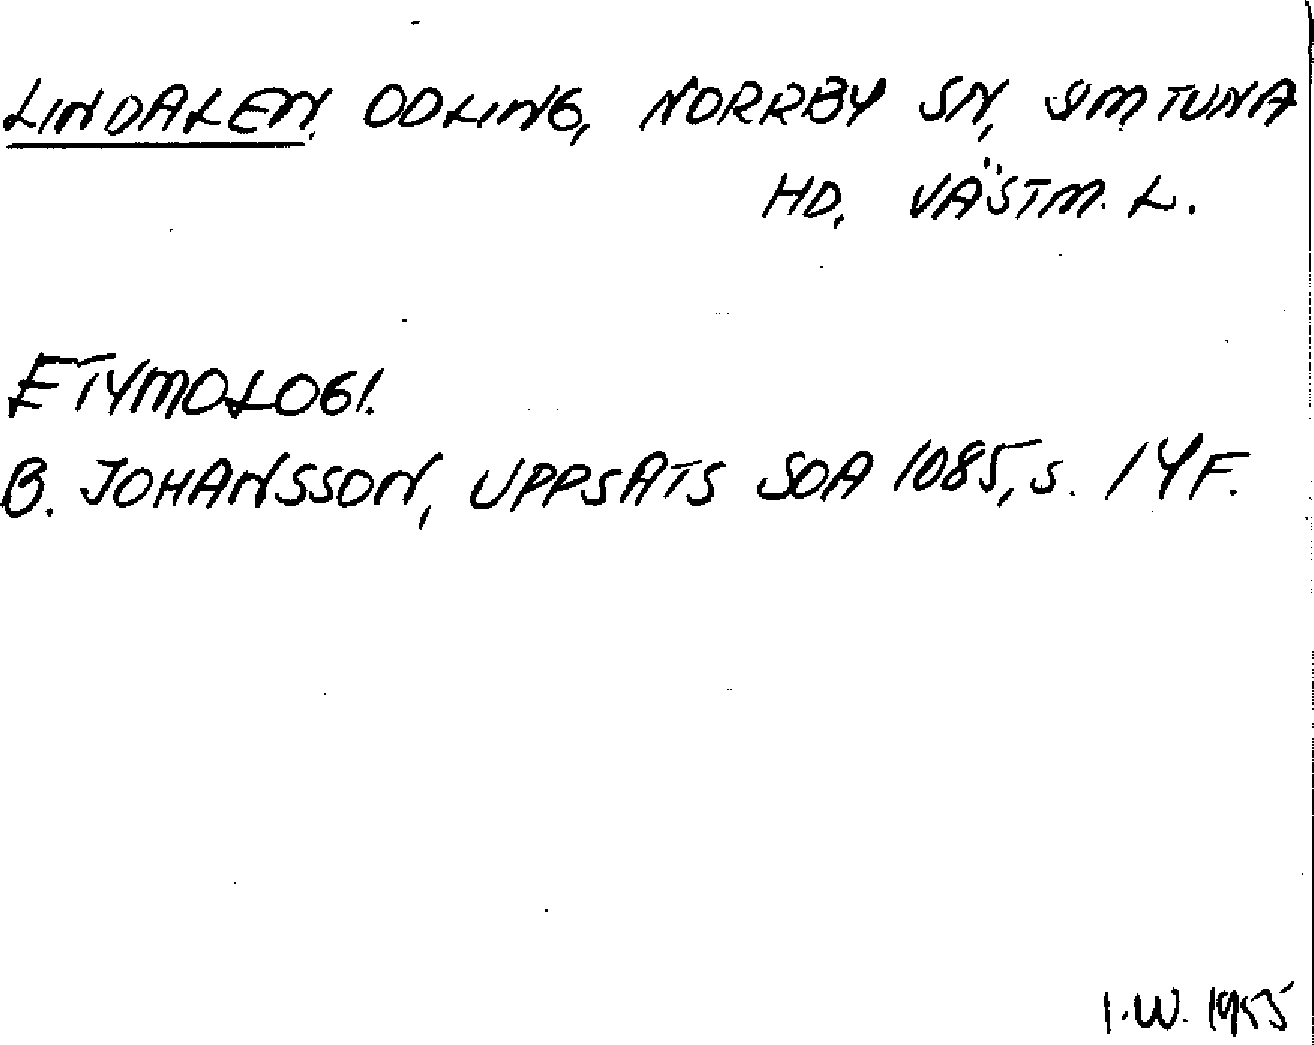 LINDALEN. ODLING, NORRBY SN, SIMTUNA
HD, VÄSTM. L.
ETYMOLOGI.
B. JOHANSSON, UPPSATS SOA 1085, S. 14 F.
I.W. 1955